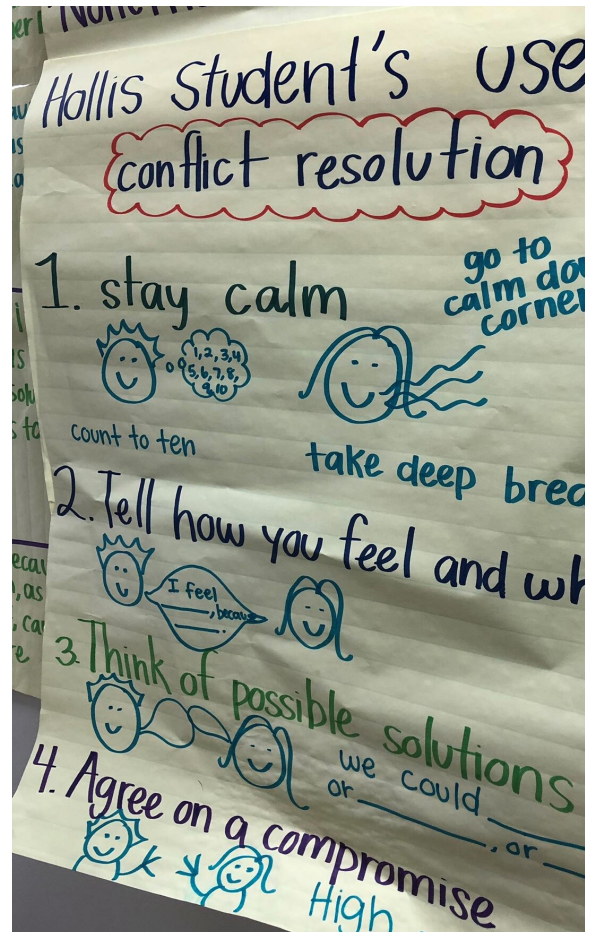 Hollis Student's use
conflict resolution
1. stay calm
go to
calm
corner
1, 2, 3, 4
5, 6, 7, 8,
9, 10
count to ten
take deep
2. Tell how you feel and
I feel
____, because
____.
3. Think of possible solutions
we could ____
or ____, or ____
4. Agree on a compromise
High